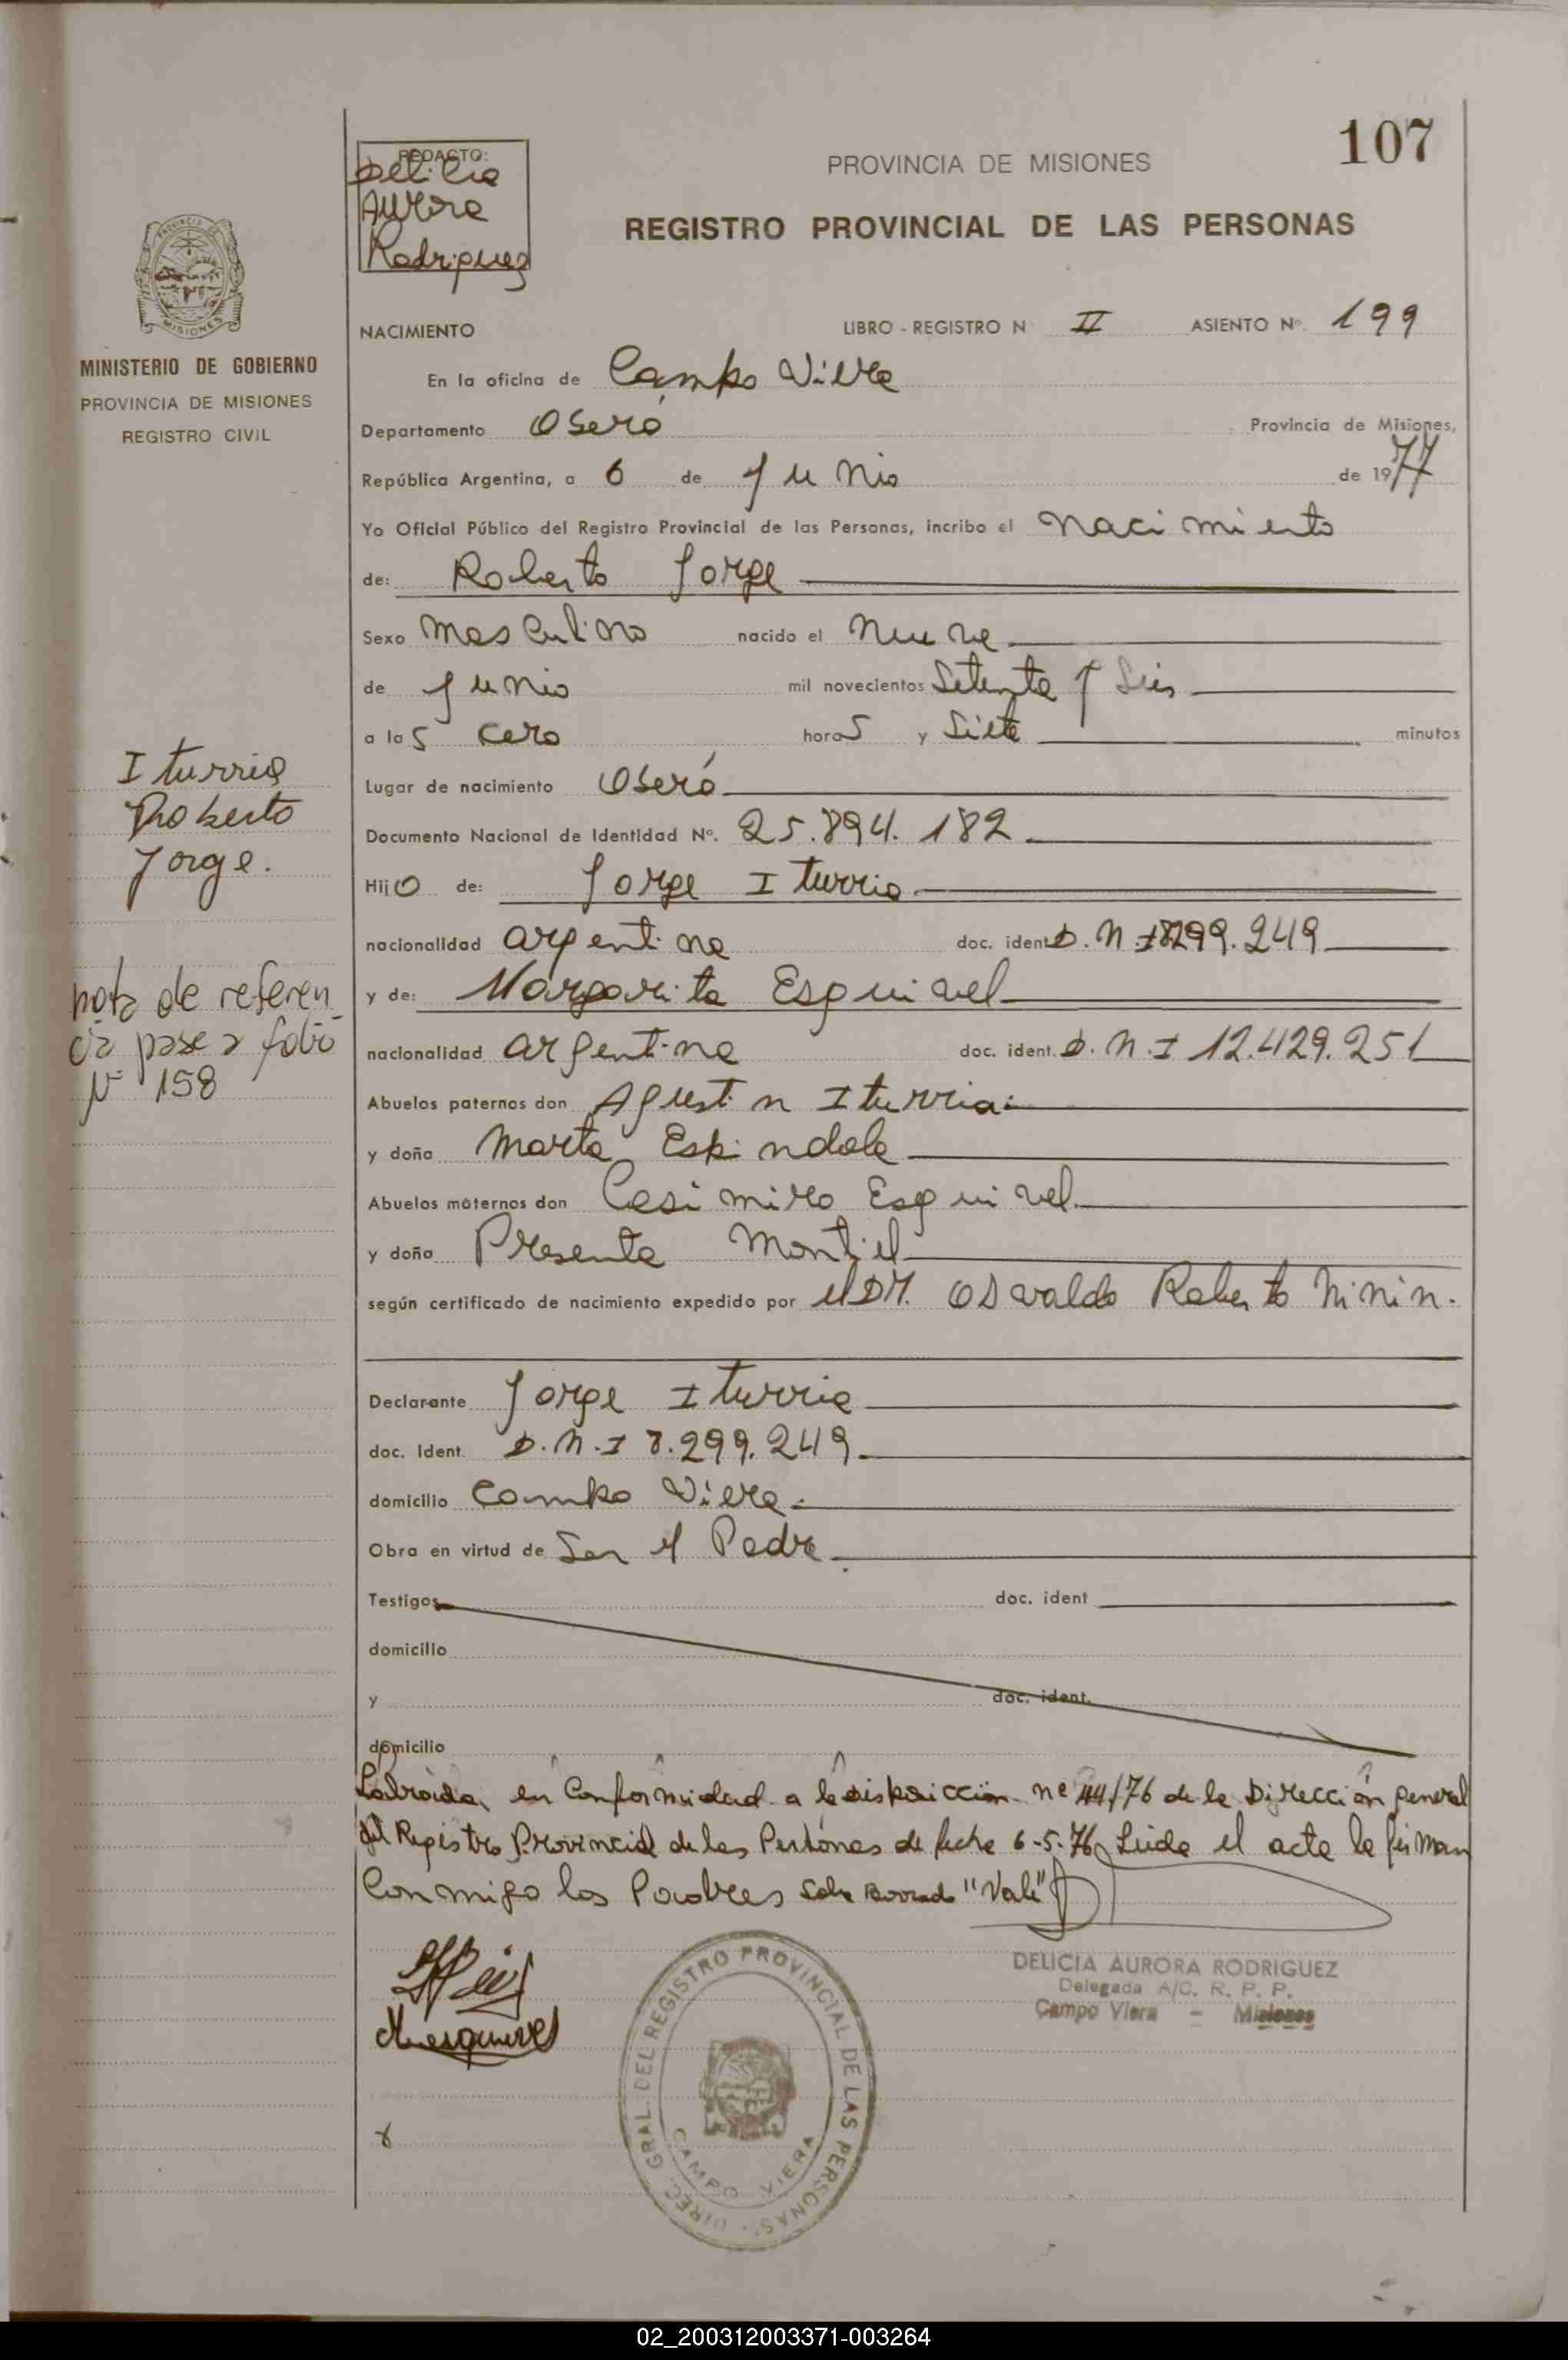 107
REDACTO:
Delicia
Aurora
Rodriguez
PROVINCIA DE MISIONES
REGISTRO PROVINCIAL DE LAS PERSONAS
MISIONES
MINISTERIO DE GOBIERNO
PROVINCIA DE MISIONES
REGISTRO CIVIL
NACIMIENTO LIBRO - REGISTRO N II ASIENTO Nº 199
En la oficina de Campo Viera
Departamento Oberá Provincia de Misiones,
República Argentina, a 6 de Junio de 1977
Yo Oficial Público del Registro Provincial de las Personas, incribo el Nacimiento
de: Roberto Jorge
Sexo Masculino nacido el Nueve
de Junio mil novecientos Setenta y Seis
a las cero horas y Siete minutos
Lugar de nacimiento Oberá
Documento Nacional de Identidad Nº. 25.894.182
Hijo de: Jorge Iturria
nacionalidad argentina doc. ident. D.N.I 8299.249
y de: Margarita Esquivel
nacionalidad argentina doc. ident. D.N.I 12.429.251
Abuelos paternos don Agustin Iturria
y doña Marta Espindola
Abuelos maternos don Casimiro Esquivel
y doña Presenta Montiel
según certificado de nacimiento expedido por el DR. Osvaldo Roberto Ninin.
Declarante Jorge Iturria
doc. Ident. D.N.I 8.299.249
domicilio Campo Viera
Obra en virtud de Ser el Padre
Testigos doc. ident
domicilio
y doc. ident.
domicilio
Labrada en Conformidad a la disposicción nº 44/76 de la Dirección general
del Registro Provincial de las Personas de fecha 6-5-76 Leida el acta la firman
Conmigo los Padres Sobre Borrado "Vale"
Iturria
Roberto
Jorge.
nota de referen
cia pase a folio
Nº 158
M. esquivel
DELICIA AURORA RODRIGUEZ
Delegada A/C. R. P. P.
Campo Viera - Misiones
DIREC. GRAL. DEL REGISTRO PROVINCIAL DE LAS PERSONAS
CAMPO VIERA
02_200312003371-003264